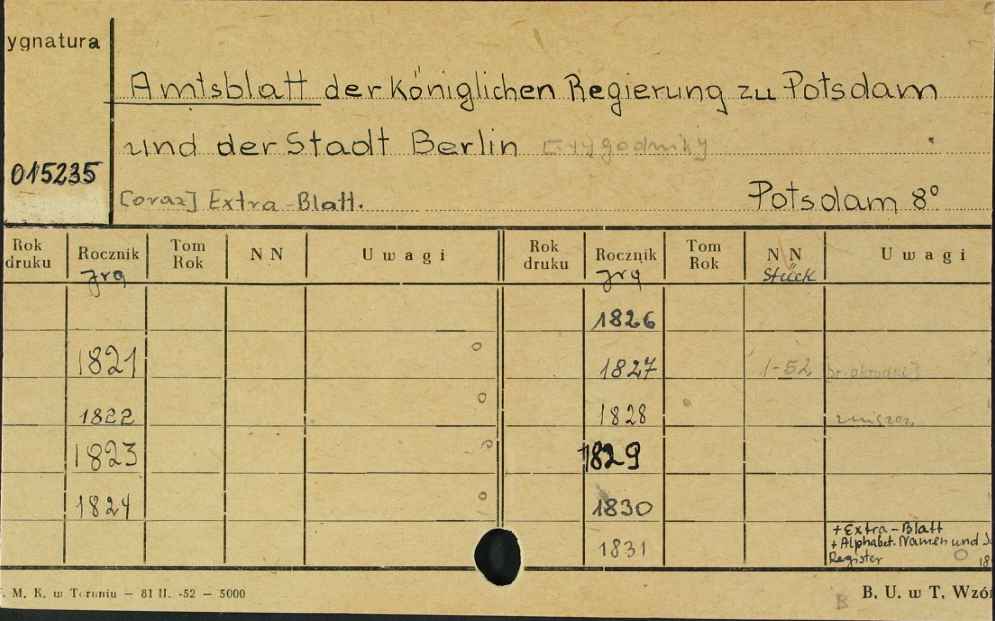 ygnatura
Amtsblatt der Königlichen Regierung zu Potsdam
und der Stadt Berlin
015235
[oraz] Extra-Blatt. Potsdam 8°
Rok druku Rocznik Jrg Tom Rok N N Uwagi Rok druku Rocznik Jrg Tom Rok N N Stück Uwagi
1826
1821 1827 1-52
1822 1828 zniszcz.
1823 1829
1824 1830
1831 + Extra-Blatt
+ Alphabet. Namen und
Register
M. K. w Toruniu — 81 II. -52 — 5000
B B. U. w T. Wzór